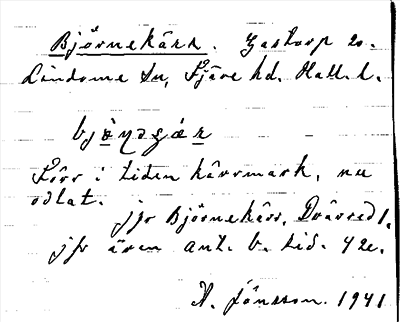 Björnekärr. Gastorp 20.
Lindome sn, Fjäre hd. Hall. l.
Förr i tiden kärrmark, nu
odlat.
jfr Björnekärr, Dvärred 1.
jfr även ant. b. sid. 42.
A. Jönsson. 1941